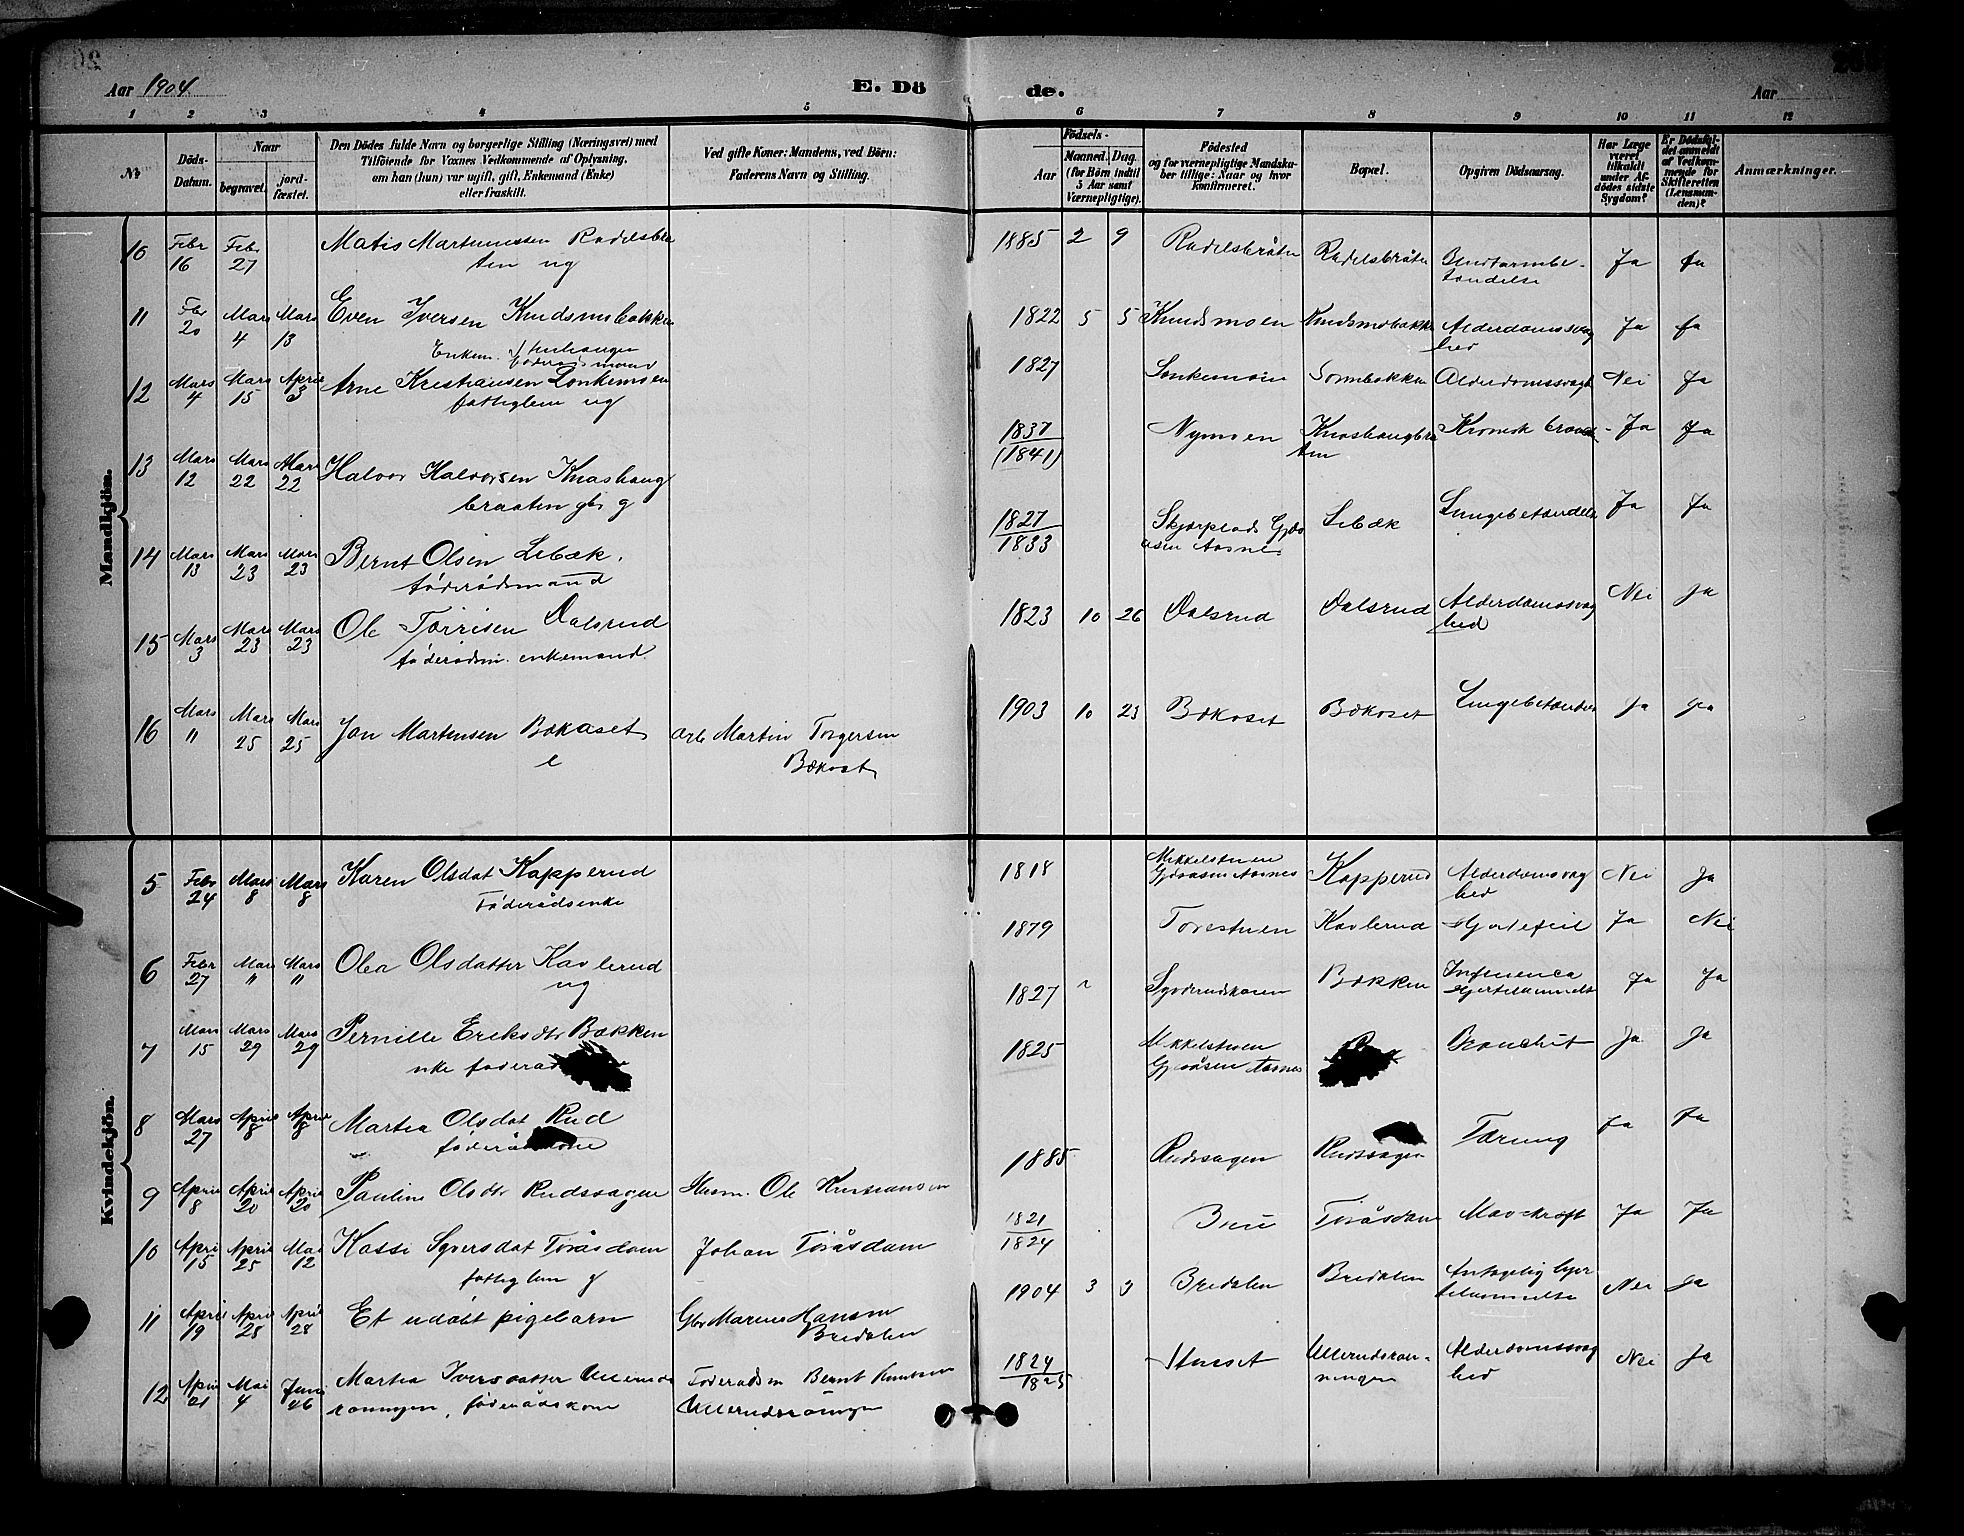 Aar 1904.
E. Dö
de.
Aar
1 2 3 4 5 6 7 8 9 10 11 12
No
Döds-
Datum.
Naar
begravet.
jord-
fæstet.
Den Dödes fulde Navn og borgerlige Stilling (Næringsvei) med
Tilföiende for Voxnes Vedkommende af Oplysning,
om han (hun) var ugift, gift, Enkemand (Enke)
eller fraskilt.
Ved gifte Koner: Mandens, ved Börn:
Faderens Navn og Stilling.
Födsels-
Aar
Maaned. Dag.
(for Börn indtil
5 Aar samt
Værnepligtige).
Födested
og for værnepligtige Mandska-
ber tillige: Naar og hvor
konfirmeret.
Bopæl.
Opgiven Dödsaarsag.
Har Læge
været
tilkaldt
under Af-
dödes sidste
Sygdom?
Er Dödsfal-
det anmeldt
af Vedkom-
mende for
Skifteretten
(Lensman-
den)?
Anmærkninger.
Mandkjön.
10 Febr 16 Feb 27 Matis Martinussen Radelsbra
ten ug
1885 2 9 Radelsbråten Radelsbråten Blindtarmbe-
tændelse Ja Ja
11 Feb 20 Mars 4 Mars 13 Even Iversen Knudsmobakken
Enkem. föderådsmand
1822 5 5 Knudsmoen Knudsmobakken Alderdomssvag
hed Ja Ja
12 Mars 4 Mars 15 April 3 Arne Kristiansen Lonkemoen
fattiglem ug
1827 Lonkemoen Alderdomssvagh Nei Ja
13 Mars 12 Mars 22 Mars 22 Halvor Halvorsen Knashaug
braaten gbr g
1837
(1841) Nymoen Knashaugbra
ten Kronisk Ja Ja
14 Mars 13 Mars 23 Mars 23 Bernt Olsen Libæk.
föderådsmand
1827
1833 Libæk Lungebetændelse Ja Ja
15 Mars 3 Mars 23 Mars 23 Ole Torrisen Dalsrud
föderådsm. enkemand.
1823 10 26 Dalsrud Dalsrud Alderdomssvag
hed Nei Ja
16 Mars " Mars 25 Mars 25 Jon Martinsen Bækaset
e
Arb Martin Torgersen
Bækaset
1903 10 23 Bækaset Bækaset Lungebetændelse Ja Ja
Kvindekjön.
5 Febr 24 Mars 8 Mars 8 Karen Olsdat Kapperud
Föderådsenke
1818 Mikkelstuen
Gjøåsen Aasnes Kapperud Alderdomsvag
hed Nei Ja
6 Febr 27 Mars " Mars " Olea Olsdatter Kavlerud
ug
1879 Torestuen Kavlerud Hjertefeil Ja Nei
7 Mars 15 Mars 29 Mars 29 Pernille Eriksdtr Bækken
nke föderåd
1827 Bækken Influenca
Ja Ja
8 Mars 27 April 8 April 8 Martea Olsdat Rud
1825 Mikkelstuen
Gjøåsen Aasnes Bronchit Ja Ja
9 April 8 April 20 April 20 Pauline Olsdtr Rudssagen Husm. Ole Kristiansen
1885 Rudssagen Rudssagen Tæring Ja Ja
10 April 15 April 25 Mai 12 Kassi Syversdat Toråsdam
fattiglem g
Johan Toråsdam
1821
1824 Toråsdam Mavekræft Ja Ja
11 April 19 April 28 April 28 Et udöbt pigebarn Gbr Marius Hansen
Bredalen
1904 3 3 Bredalen Bredalen Antagelig hjer
telammelse Nei Ja
12 April 21 Mai 4 Juni 26 Martea Iversdatter Ullerud
röningen, föderådskone
Föderådsm Bernt Knutsen
Ullerudsröningen
1824
1825 Ullerudsröd-
ningen Alderdomssvag
hed Nei Ja